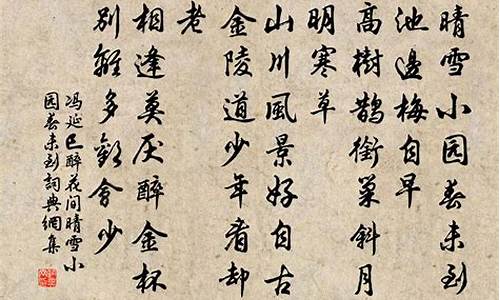 晴雪小园春未到
池邊梅自早
高樹鵲銜巢斜月
明寒草
山川風景好自古
金陵道少年看却
老
相逢莫厌醉金杯
別離多歡會少
冯延巳醉花间晴雪小
园春未到詞典網集